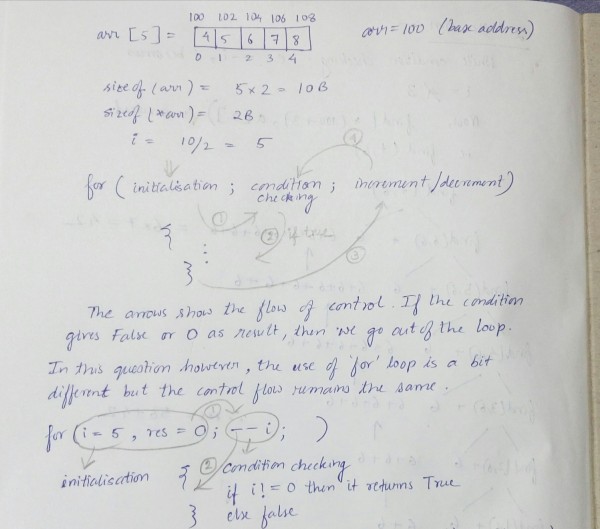 100 102 104 106 108
arr [5] = 4 5 6 7 8 arr = 100 (base address)
0 1 2 3 4
sizeof (arr) = 5 x 2 = 10 B
sizeof (*arr) = 2B
i = 10/2 = 5
④
for ( initialisation ; condition checking ; increment/decrement )
① ② if true ③
{
⋮
}
The arrows show the flow of control. If the condition
gives False or 0 as result, then we go out of the loop.
In this question however, the use of 'for' loop is a bit
different but the control flow remains the same.
①
for (i = 5 , res = 0 ; --i ; )
initialisation { ② condition checking
if i != 0 then it returns True
} else false